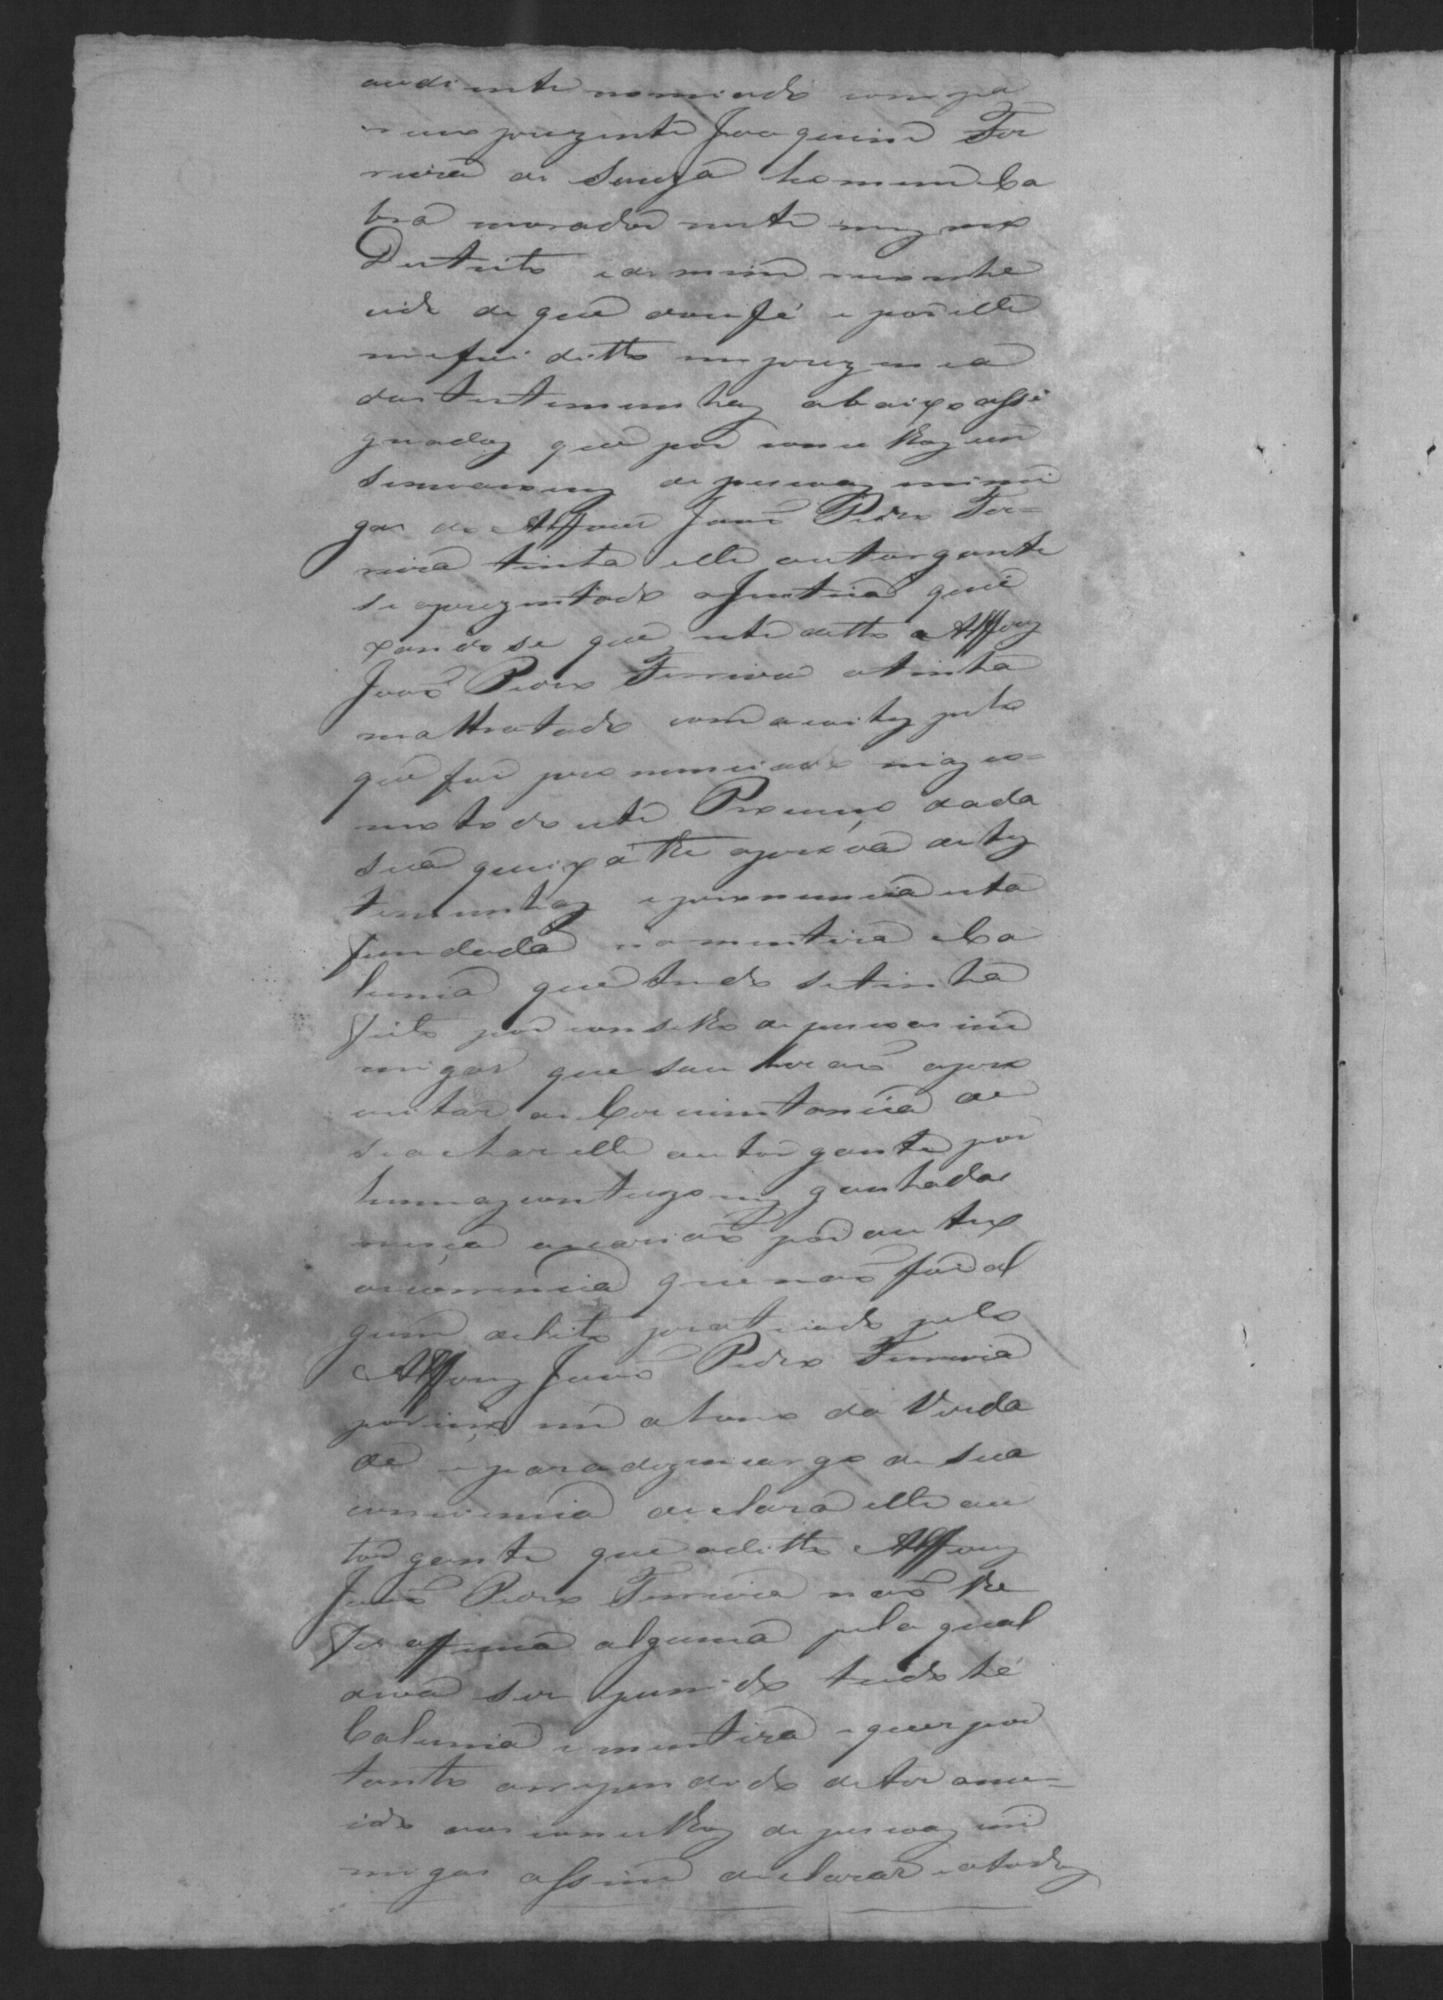 audiente nomiado compa
receo prezente Joaquim Fer
reira de Souza homem Ca
bra morador neste mezmo
Destrito e de mim reconhe
cido de que dou fé e por elle
me foi ditto em prezencia
das testemunhaz abaixo assi
gnadaz que por conselhoz
de pesoaz inimi
gas do Alferez Joaõ Pedro Fer=
reira tinha elle outorgante
se aprezentado a Justiça quei
xando se que este ditto Alferez
Joaõ Pedro Ferreira o tinha
maltratado com acoitez pelo
que foi pronunciado
Procuro dada
sua queixa athe a prova de tez
temunhaz e pronuncia esta
fundada na mentira e Ca
lunia que tudo se tinha
feito por conselho de pesoas ini
migas que souberaõ apro
veitar da Circunstancia de
se achar elle outorgante por
humaz contuzoenz ganhadas
por outra
ocorrencia que naõ foi al
gum delito praticado pelo
Alferez Joaõ Pedro Ferreira
porime em abono da Verda
de e para dezencargo de sua
conciencia declara elle ou
torgante que o ditto Alferez
Joaõ Pedro Ferreira naõ lhe
fez offenca alguma pela qual
deva ser punido tudo hé
Calunia e mentira e quer por
tanto arrependido de ter anu=
ido aos conselhoz de pesoaz ini
migas assim declarar e a todoz